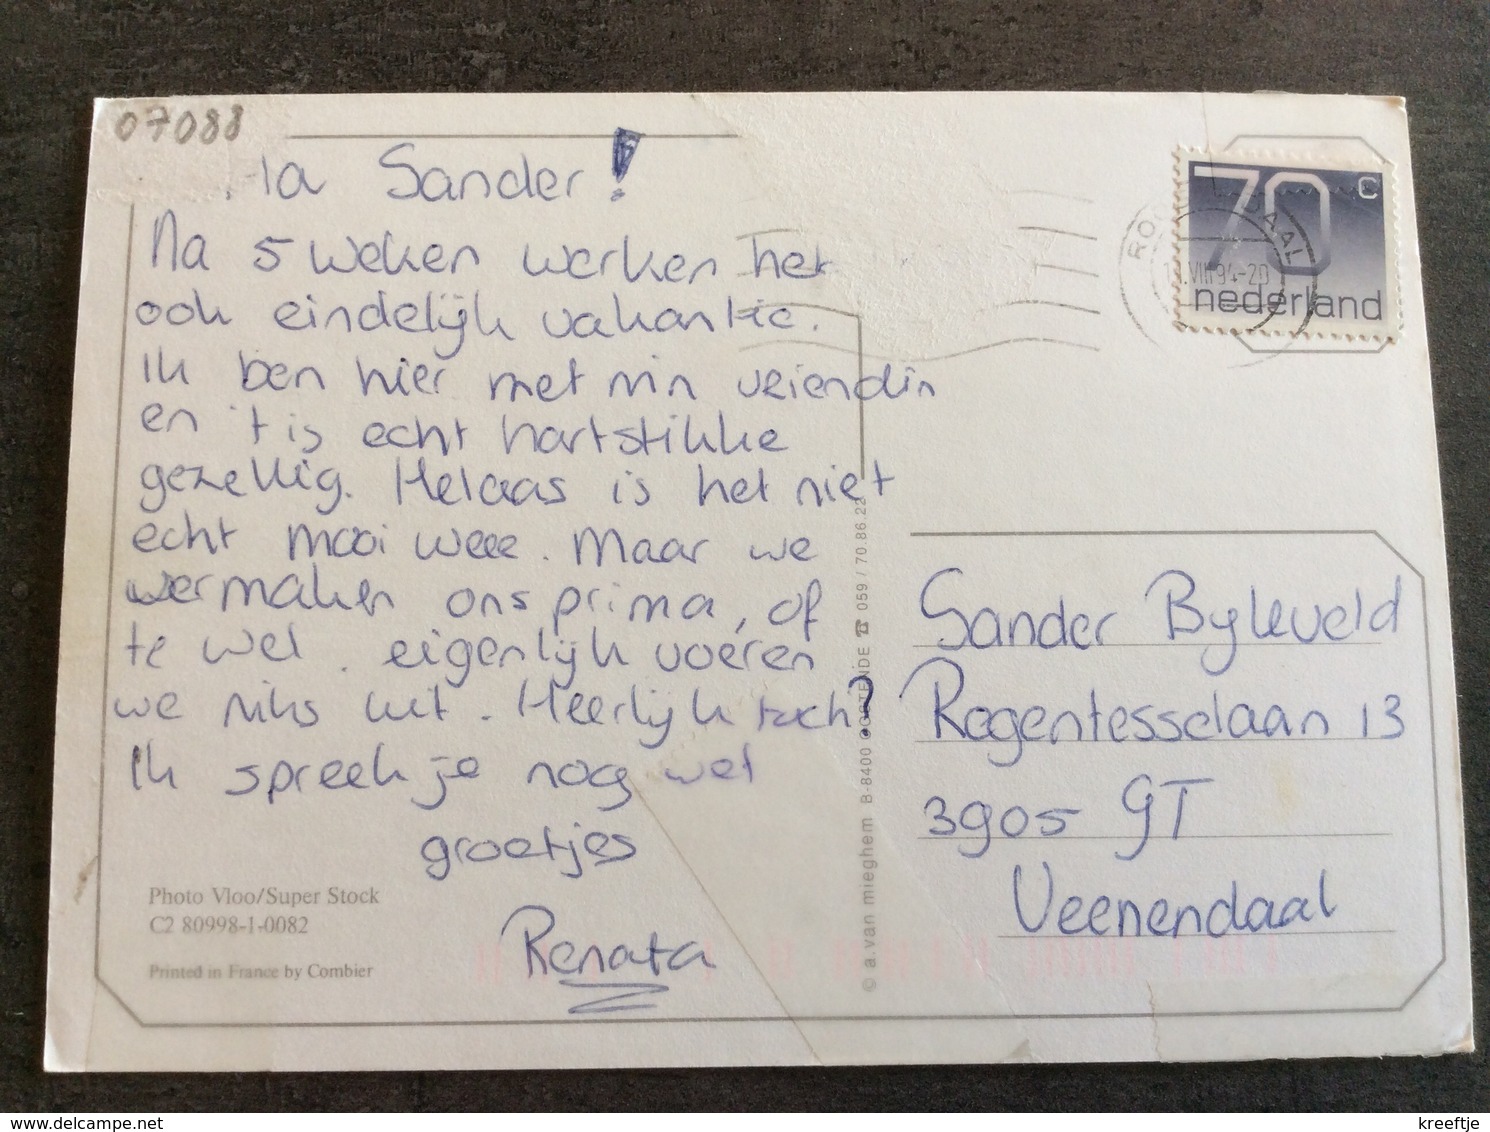 07088
Ha Sander!
Na 5 weken werken het
ook eindelijk vakantie.
Ik ben hier met m'n vriendin
en 't is echt hartstikke
gezellig. Helaas is het niet
echt mooi weer. Maar we
vermaken ons prima, of
te wel. eigenlijk voeren
we niks uit. Heerlijk toch?
Ik spreek je nog wel
groetjes
Renata
Photo Vloo/Super Stock
C2 80998-1-0082
Printed in France by Combier
© a.van mieghem B-8400 OOSTENDE ☎ 059 / 70.86.22
70 c
nederland
VIII 94-20
Sander Byleveld
Regentesselaan 13
3905 GT
Veenendaal
delcampe.net
kreeftje